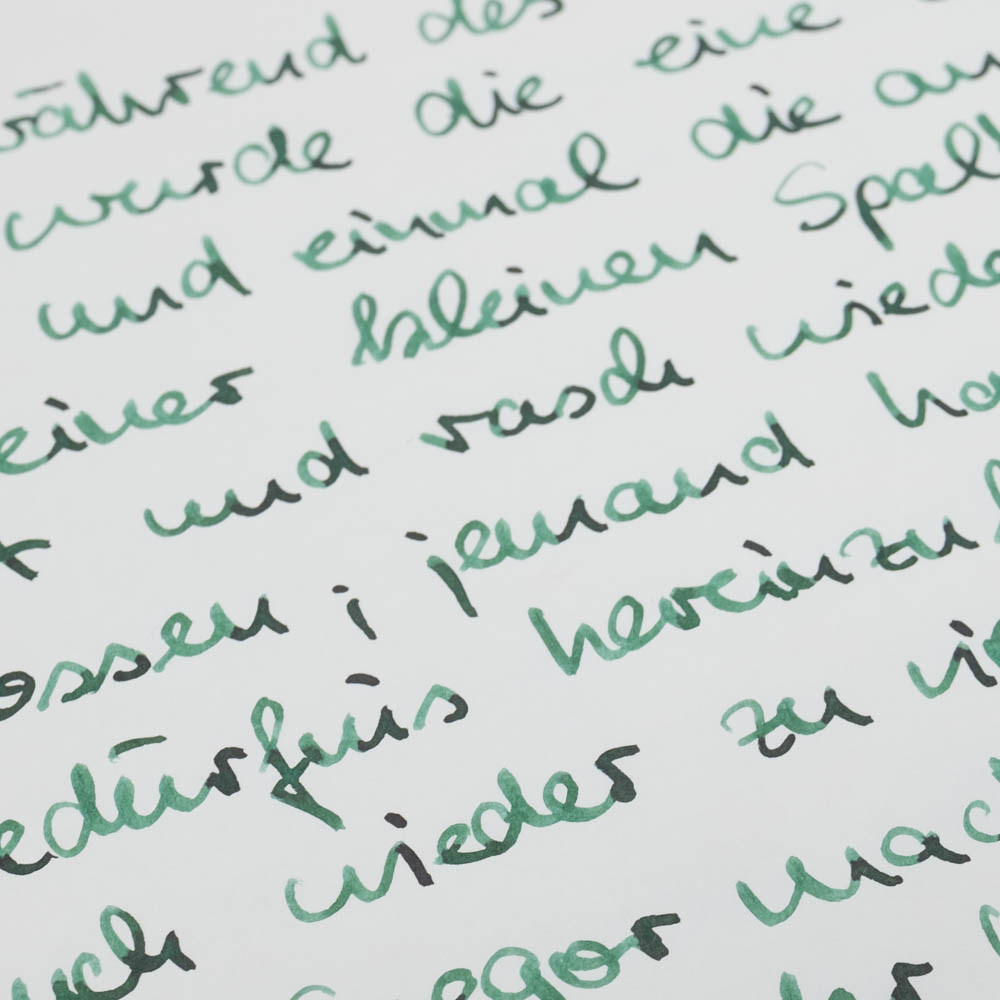 während des
wurde die eine
und einmal die an
einer kleinen Spal
und rasch wiede
ossen; jemand ha
edürfnis hereinzu
wieder zu vie
uch Gregor mac